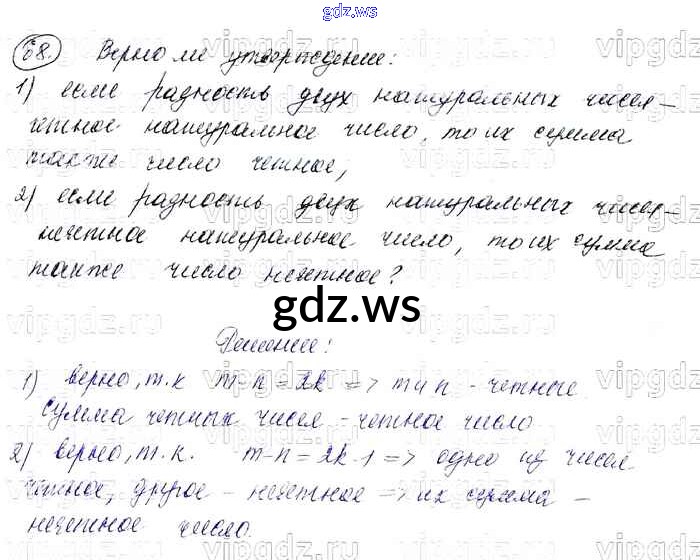 gdz.ws
68. Верно ли утверждение:
1) если разность двух натуральных чисел –
четное натуральное число, то их сумма
также число четное;
2) если разность двух натуральных чисел –
нечетное натуральное число, то их сумма
также число нечетное?
gdz.ws
Решение:
1) верно, т.к m-n=2k => m и n - четные
сумма четных чисел - четное число
2) верно, т.к. m-n=2k-1 => одно из чисел
четное, другое - нечетное => их сумма -
нечетное число.